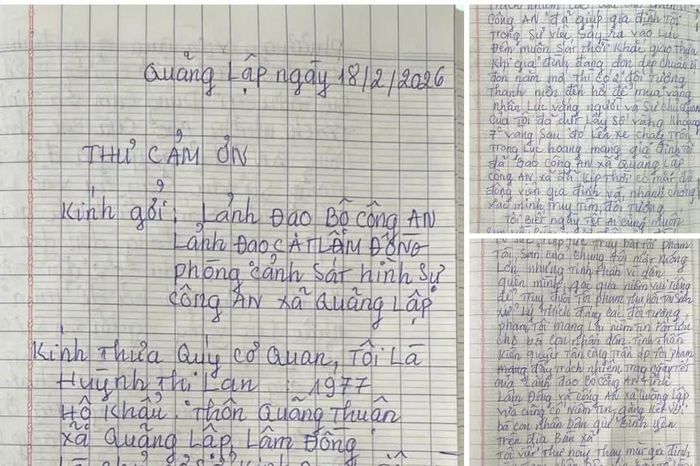 Quảng Lập ngày 18/2/2026
THƯ CẢM ƠN
Kính gởi: Lảnh Đạo Bộ Công AN
Lảnh Đạo CATLẦM ĐỒNG
phòng cảnh sát hình sự
công AN xã Quảng Lập
Kính Thưa Quý cơ Quan, Tôi Là
Huỳnh Thị Lan : 1977
Hộ Khẩu: Thôn Quảng Thuận
xã Quảng Lập, Lâm Đồng
Công AN đã giúp gia đình Tôi
Trong Sự việc Sảy ra vào Lúc
Đêm muộn Sát Thời Khắc giao Thừa
Khi gia đình đang dọn dẹp chuẩn bị
đón năm mới Thì có 2 đối Tượng
Thanh niên đến hỏi để mua vàng
nhân Lúc vắng người và Sự chủ quan
của Tôi đã cướp Lấy Số vàng Khoảng
7 vàng Sau đó Lên xe chạy Trốn
Trong Lúc hoang mang gia đình Tôi
đã Báo Công AN xã Quảng Lập
Công AN xã đã Kịp Thời có mặt đã
động viên gia đình và nhanh chóng
xác minh Truy Tìm đối Tượng
Tôi Biết ngày Tết Ai cũng muốn
Truy bắt Tội phạm
Tài Sản của chúng Tôi mất Không
Lớn nhưng Tinh Thần vì dân
quên mình, gác qua niềm vui riêng
để Truy đuổi Tội phạm Thu hồi Tài Sản
xử Lý Thích đáng các đối Tượng
phạm Tội mang Lại niềm Tin
cho bà con nhân dân, Tinh Thần
Kiên quyết Tấn công Trấn áp Tội phạm
mang đầy Trách nhiệm Trong ngày Tết
của Lảnh đạo Bộ Công AN
Lâm Đồng và công AN xã Quảng Lập
vừa củng cố niềm Tin, gắng Kết với
bà con nhân dân giữ Bình yên
Trên địa Bàn xã
Tôi viết Thư này Thay mặt gia đình